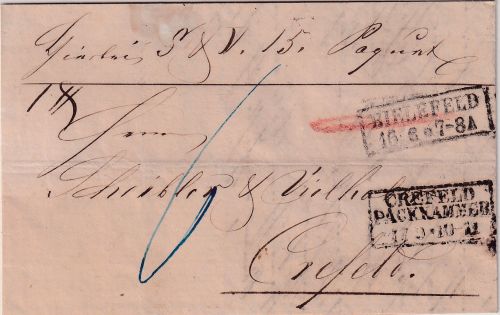 Hierbei S & V. 15. Paquet
BIELEFELD
16 6 * 7-8A
Herrn
Scheibler &
CREFELD
PACKKAMMER
17 9 * 10-11
Crefeld.